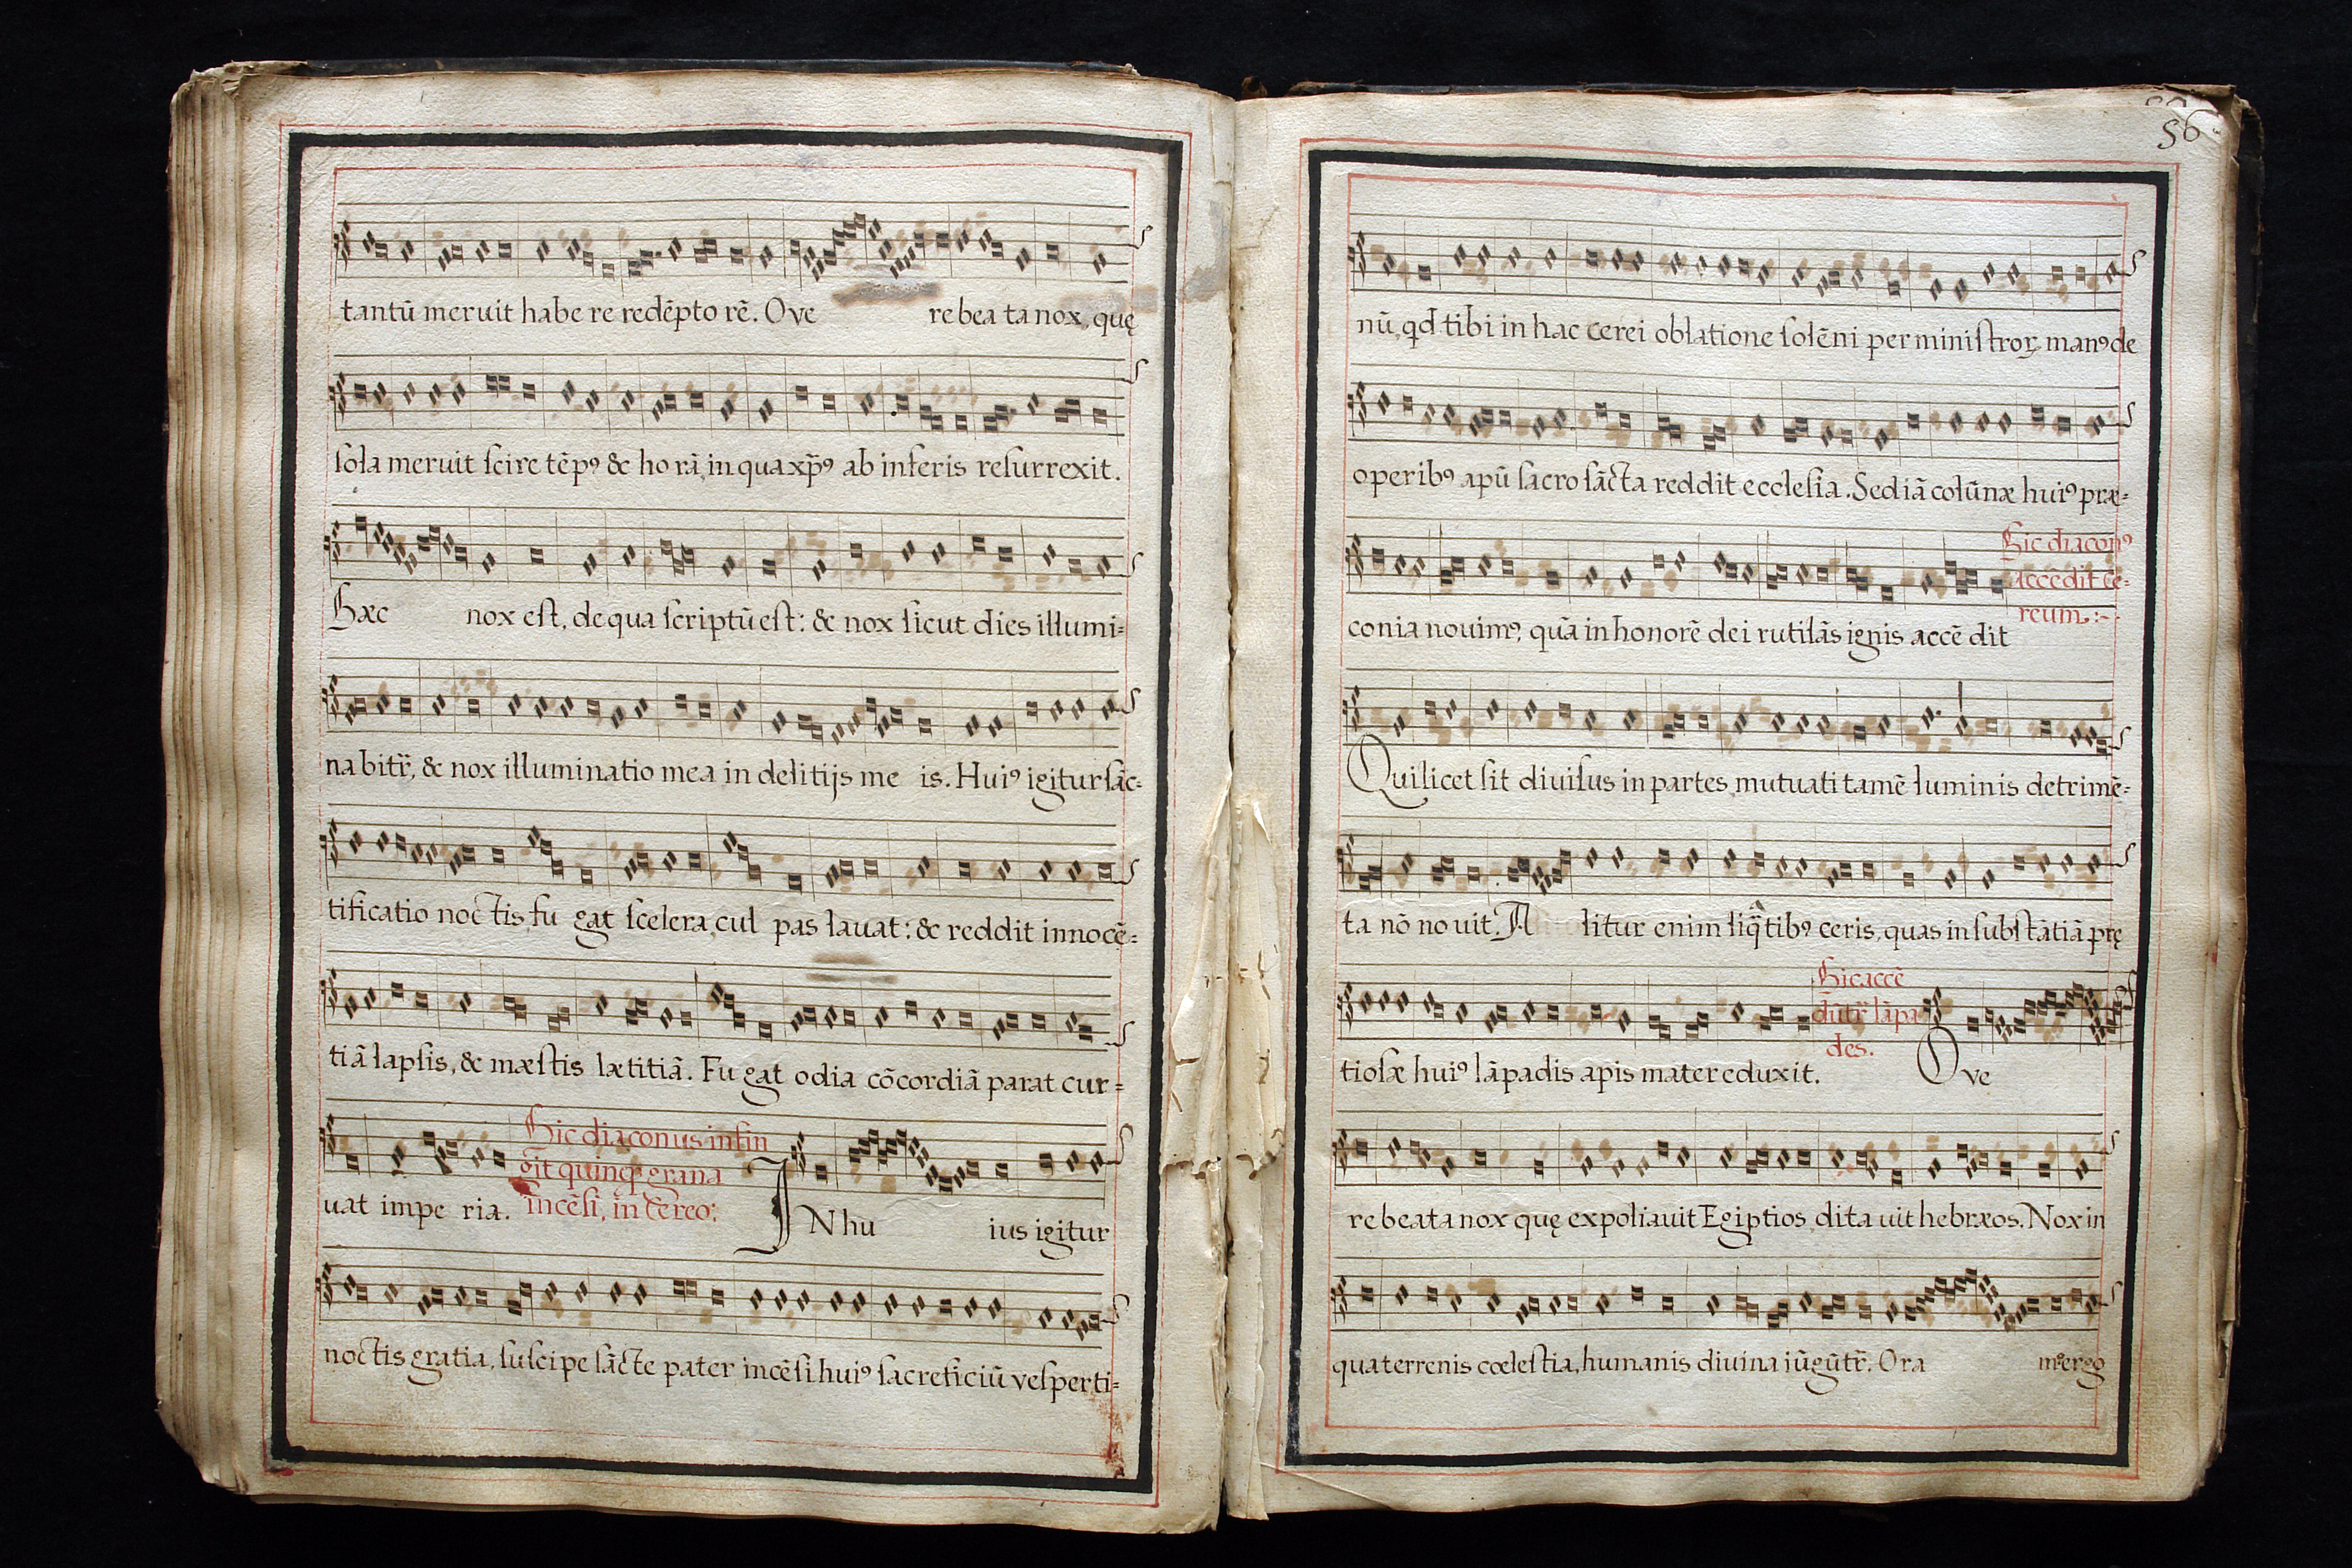 tantū meruit habe re redēpto rē. O ve re bea ta nox, quę
sola meruit scire tēpꝰ & ho rā, in qua xp̄ꝰ ab inferis resurrexit.
Hæc nox est, de qua scriptū est: & nox sicut dies illumi=
na bitr̄, & nox illuminatio mea in delitijs me is. Huiꝰ igitur sāc=
tificatio noctis, fu gat scelera, cul pas lavat: & reddit innocē=
tiā lapsis, & mæstis lætitiā. Fu gat odia cōcordiā parat cur=
Hic diaconus infin
git quinqꝫ grana
incēsi, in cereo:
uat impe ria. IN hu ius igitur
noctis gratia, suscipe sācte pater incēsi huiꝰ sacreficiū vesperti=
56
nū, qd̄ tibi in hac cerei oblatione solēni per ministroꝝ manꝰ de
operibꝰ apū sacro sācta reddit ecclesia. Sed iā colūnæ huiꝰ præ=
Hic diaconꝰ
accēdit ce=
reum:-
conia nouimꝰ, quā in honorē dei rutilās ignis accē dit
Qui licet sit divisus in partes, mutuati tamē luminis detrimē=
ta nō no uit. A litur enim liq̄tibꝰ ceris, quas in substātiā prę
Hic accē
dūtr̄ lāpa
des.
tiosæ huiꝰ lāpadis apis mater eduxit. O ve
re beata nox quę expoliauit Egiptios, dita uit hebræos. Nox in
qua terrenis cœlestia, humanis diuina iūgūtr̄. Ora mꝰ ergo